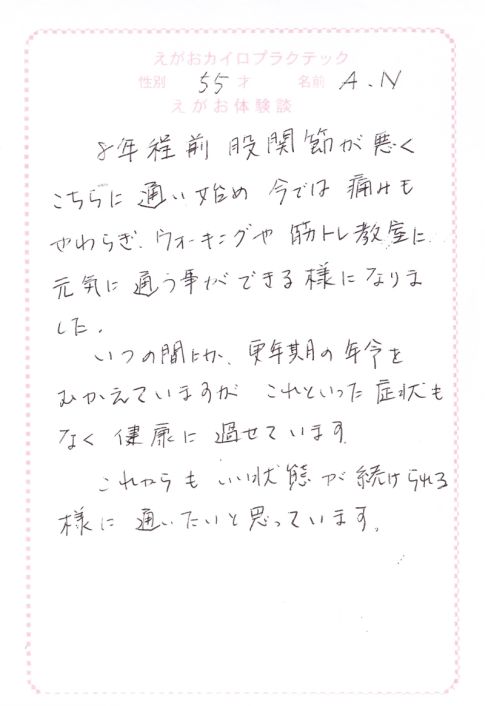 えがおカイロプラクテック
性別 55才 名前 A.N
えがお体験談
8年程前 股関節が悪く
こちらに通い始め 今では 痛みも
やわらぎ、ウォーキングや 筋トレ教室に
元気に通う事ができる様になりま
した。
いつの間にか、更年期の年令を
むかえていますが これといった症状も
なく 健康に過せています
これからも いい状態が続けられる
様に 通いたいと思っています。